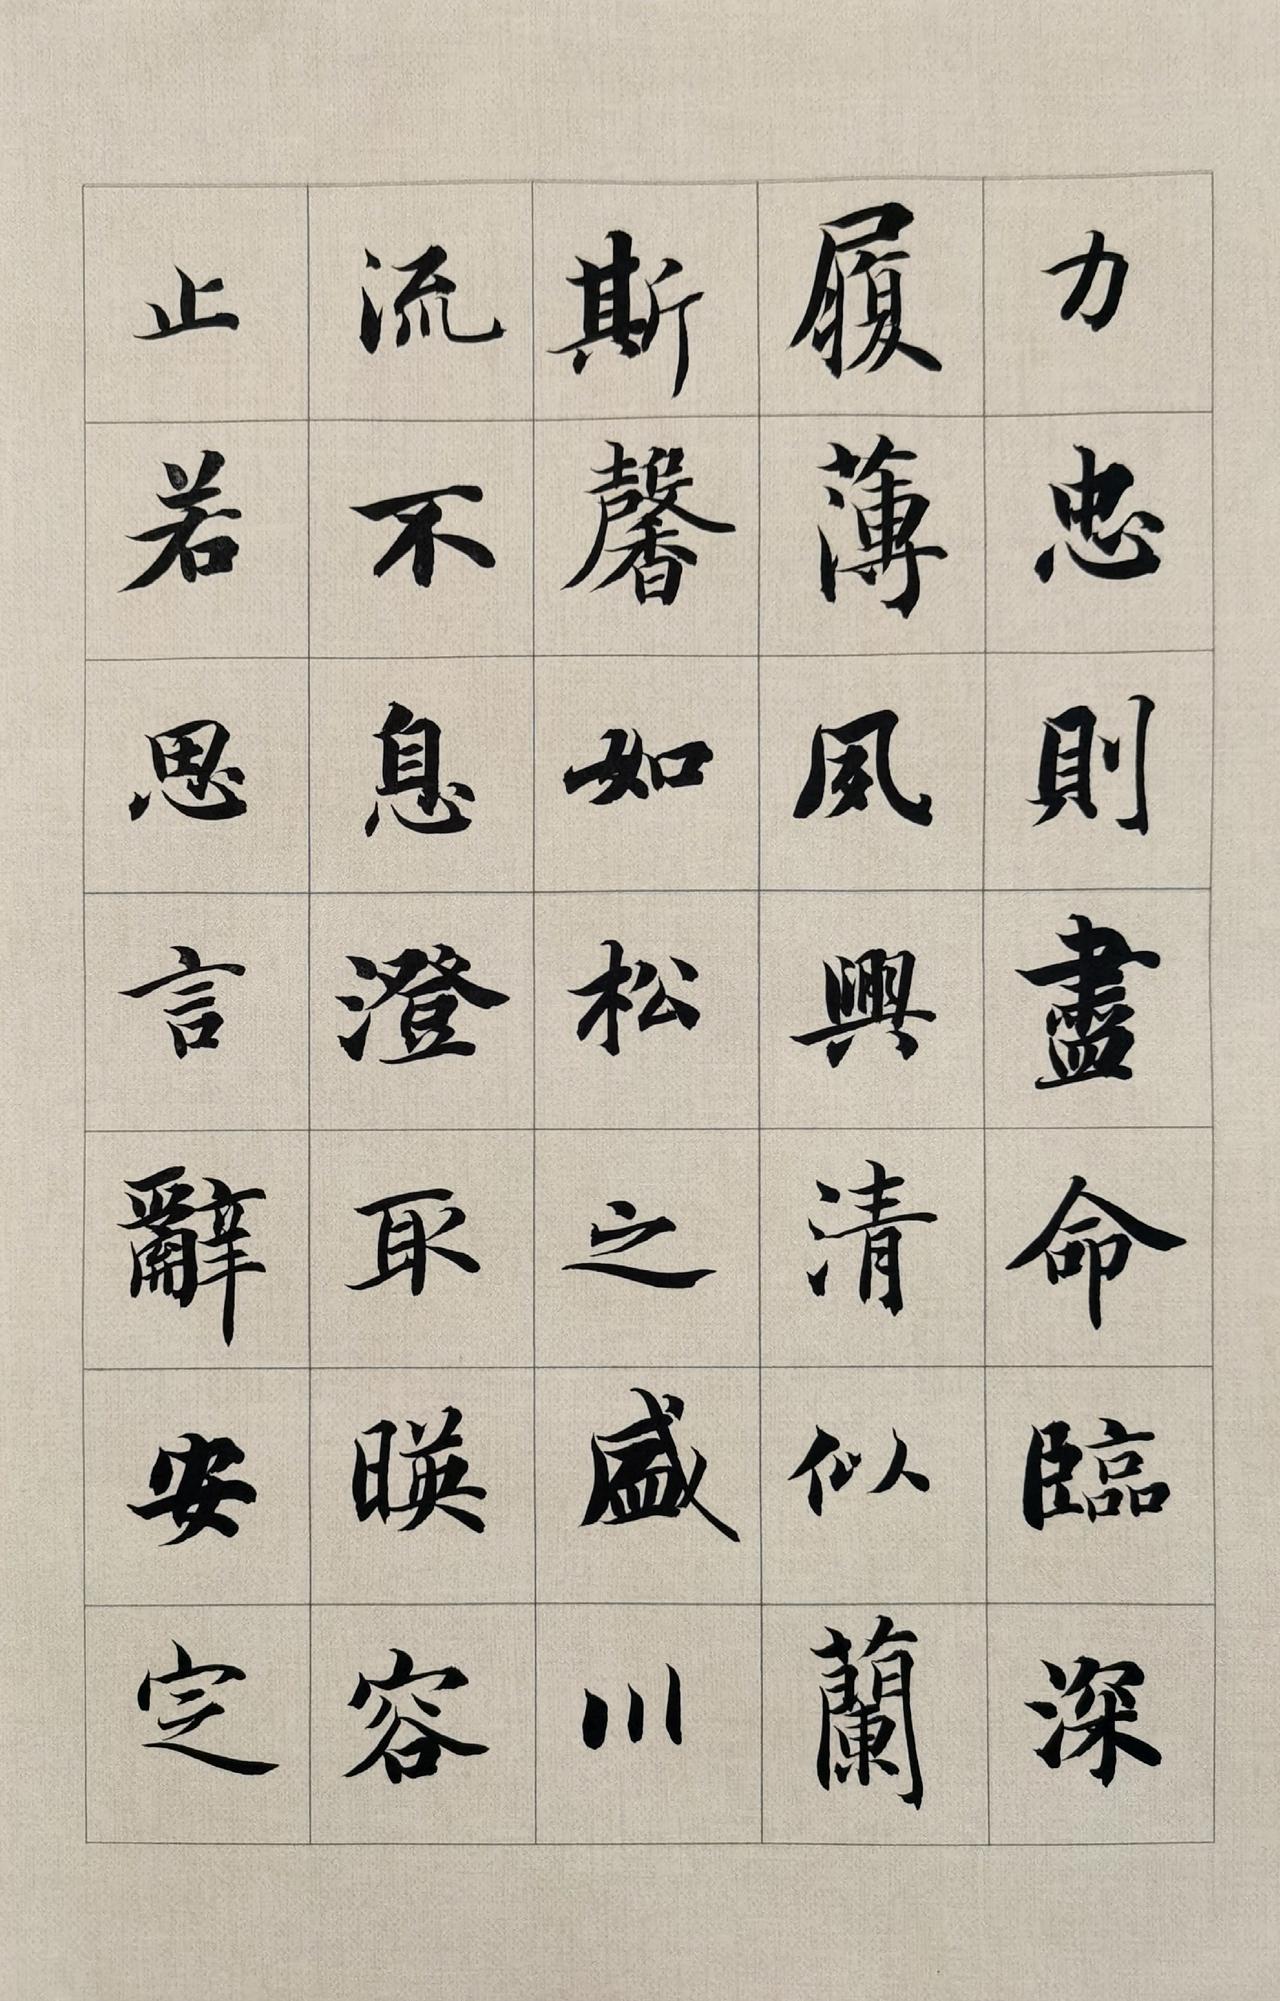 力忠則盡命臨深
履薄夙興清似蘭
斯馨如松之盛川
流不息澄取暎容
止若思言辭安定